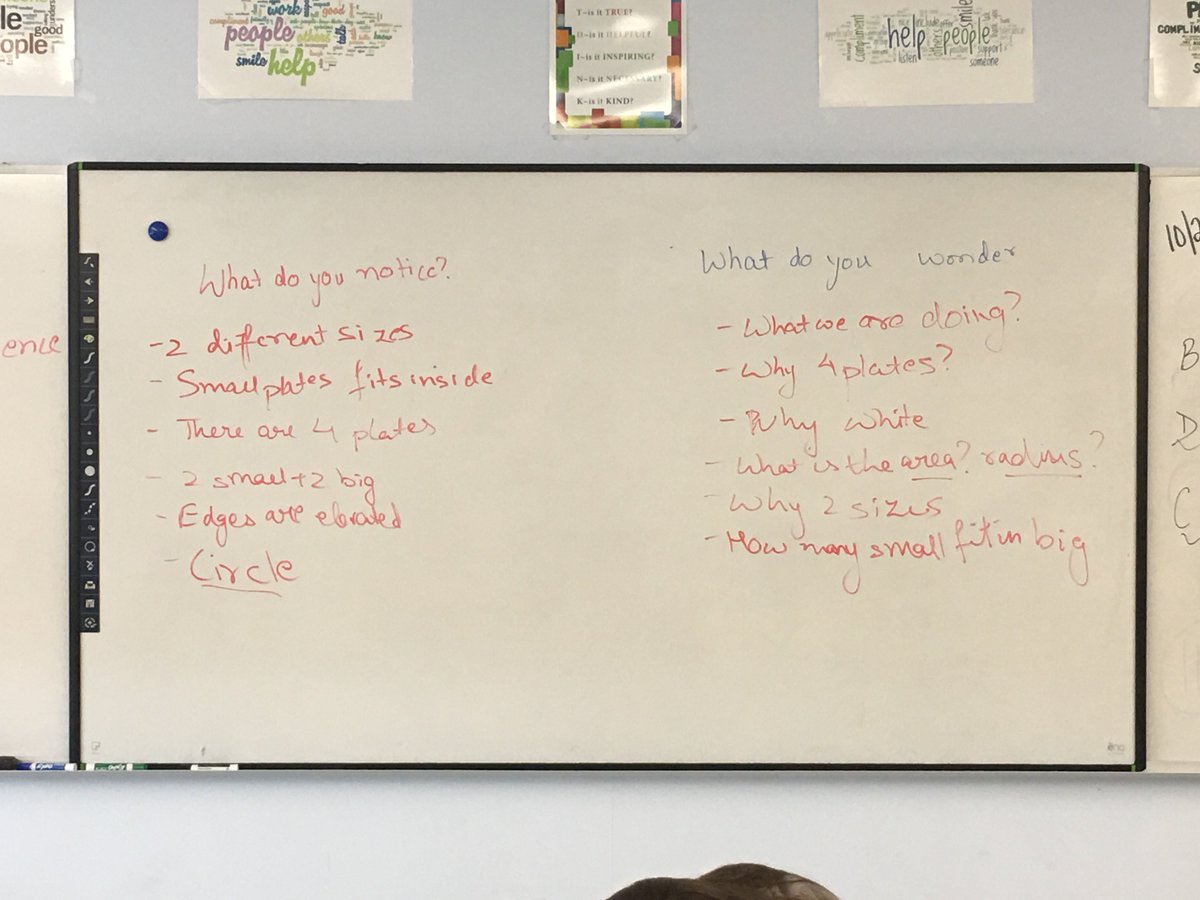 le
ople
good
compliment
work
good
people
others
talk
know
smile
help
T-is it TRUE?
H-is it HELPFUL?
I-is it INSPIRING?
N-is it NECESSARY?
K-is it KIND?
compliment
help
include
others
people
smile
listen
support
someone
P
COMPLIM
S
ence
What do you notice?
-2 different sizes
- Small plates fits inside
- There are 4 plates
- 2 small+2 big
- Edges are elevated
- Circle
What do you wonder
- What we are doing?
- Why 4 plates?
- Why white
- What is the area? radius?
- Why 2 sizes
- How many small fit in big
10/2
B
D
C
eno